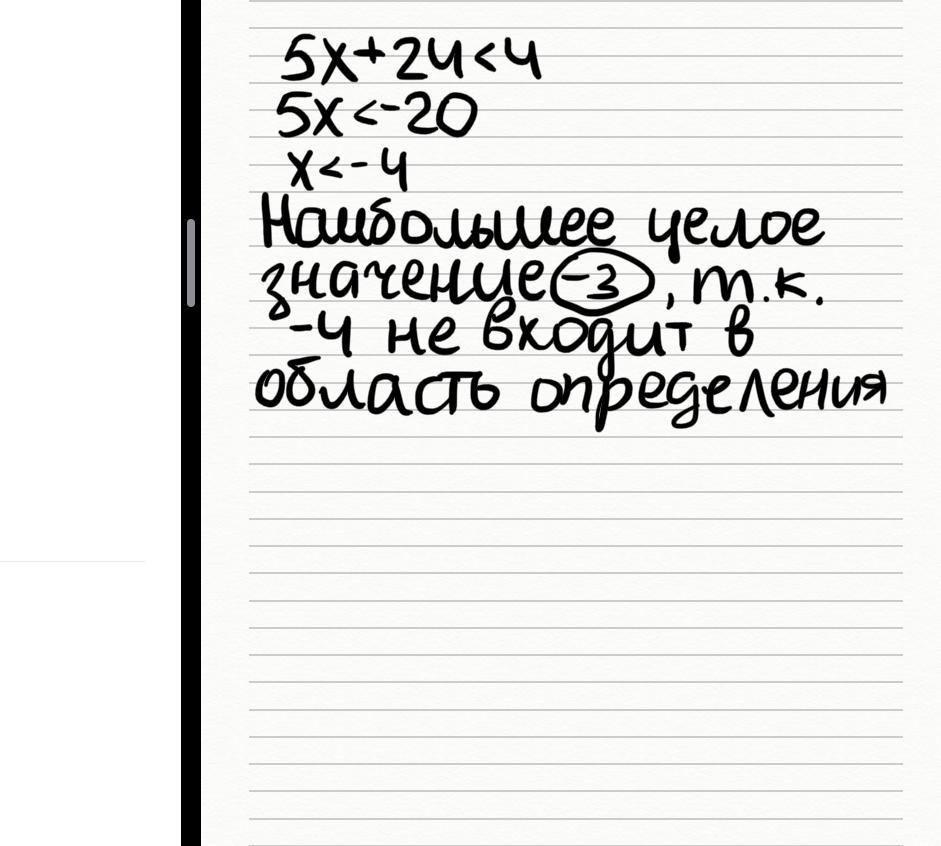 5x+24<4
5x<-20
x<-4
Наибольшее целое
значение -3, т.к.
-4 не входит в
область определения